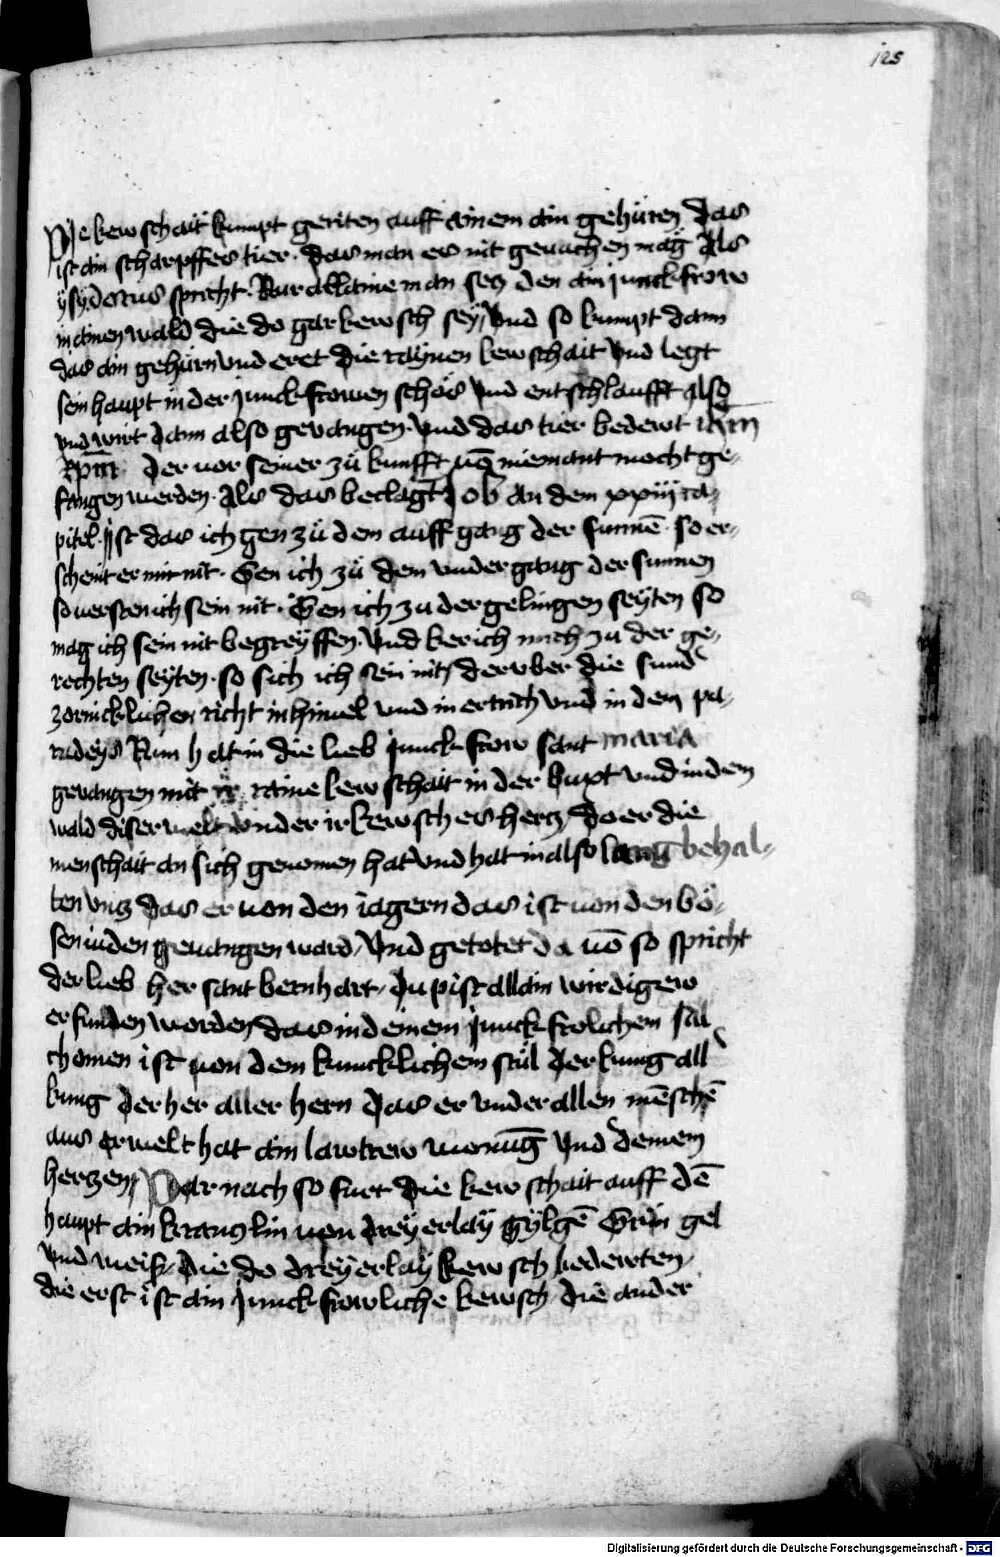 125
Die kewschait kumpt geriten auff ainem ain gehüren das
ist ain scharpffes tier. das man es nit geuachen mag Als
ysydorus spricht. Nur allaine man setz den ain junckfrow
in ainen wald die do gar kewsch sey, Vnd so kumpt dann
das ain gehürn vnd eret die raynen kewschait Vnd legt
sein haupt in der junckfrowen schos Vnd entschlaufft also
vnd wirt dann also geuangen. Vnd das tier bedewt ihm̄
xpm̄ der vor seiner zů kunfft uō niemant mocht ge-
fangen werden. Als das beclagt Job an dem xxiij ca-
pitel. Ist das ich gen zů dem auffgang der sunnē. so er-
scheint er mir nit. Gen ich zů dem vndergang der sunnen
so uersten ich sein nit. Gen ich zu der gelingen seyten so
mag ich sein nit begreyffen. Vnd ker ich mich zu der ge-
rechten seyten. so sich ich sein nit, der vber die sund
zornicklichen richt in himel vnd in ertrich vnd in dem pa-
radeys Nun hat in die lieb junckfrow sant maria
geuangen mit ir raine kewschait in der bupt vnd in dem
wald diser welt vnder ir kewsches hertz do er die
menschait an sich genomen hat Vnd hat in also lang behal-
ten vntz das er uon den iagern das ist uon den bö-
sen iuden geuangen ward, Vnd getotet da uō so spricht
der lieb her sant bernhart, du pist allain wirdigew
erfunden worden das in deinem junckfrolichen sal
chomen ist uon dem kuncklichem stůl der kung all
kung der her aller hern das er vnder allen mēschē
aus erwelt hat ain lawtrew wonūg Vnd deinem
hertzen, Dar nach so furt die kewschait auff dē
haupt ain krantzlin uon dreyerlay gylgē Grün gel
vnd weiß, die do dreyerlay kewsch bedewten,
die erst ist ain junckfrowliche kewsch, die ander
Digitalisierung gefördert durch die Deutsche Forschungsgemeinschaft - DFG